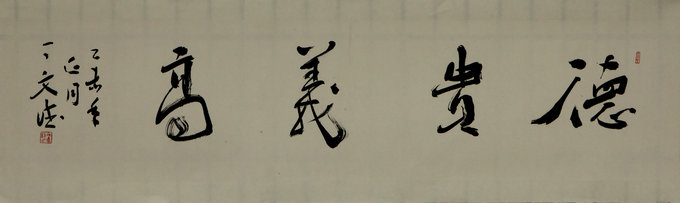 德貴義高
乙未年
正月
丁文